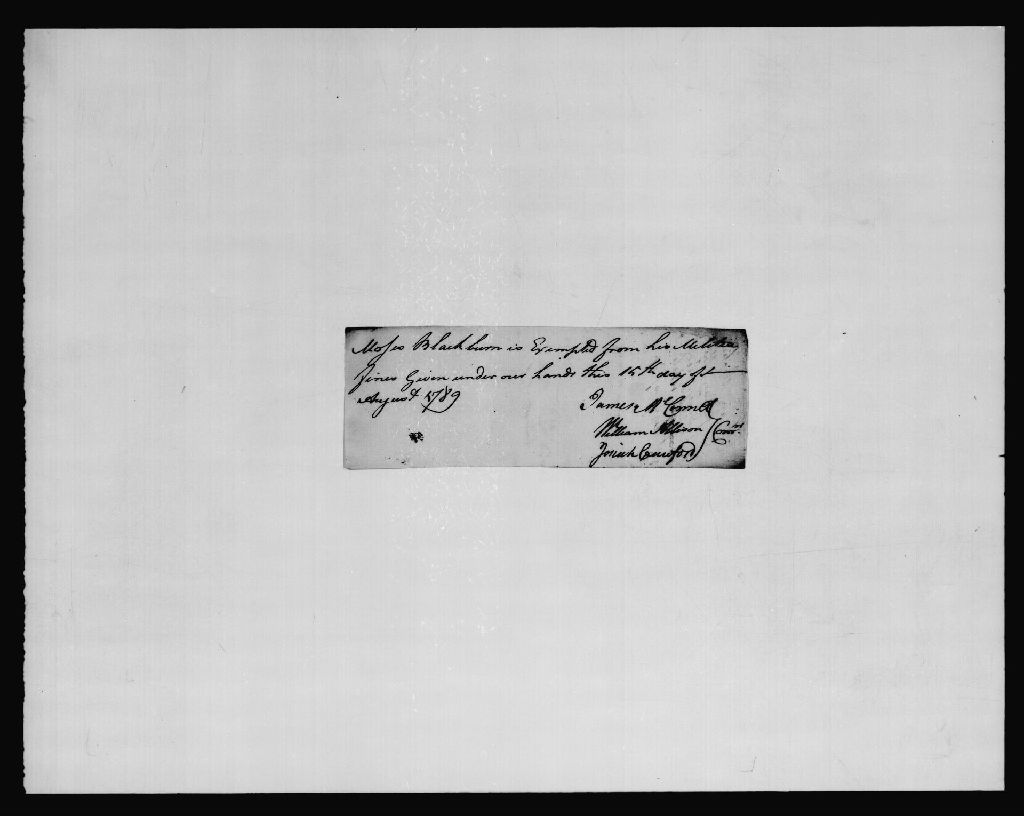 Moses Blackburn is Exempted from his Militia
fines Given under our hands this 15th day of
August 1789
James McConnel
William Allison
Josiah Crawford